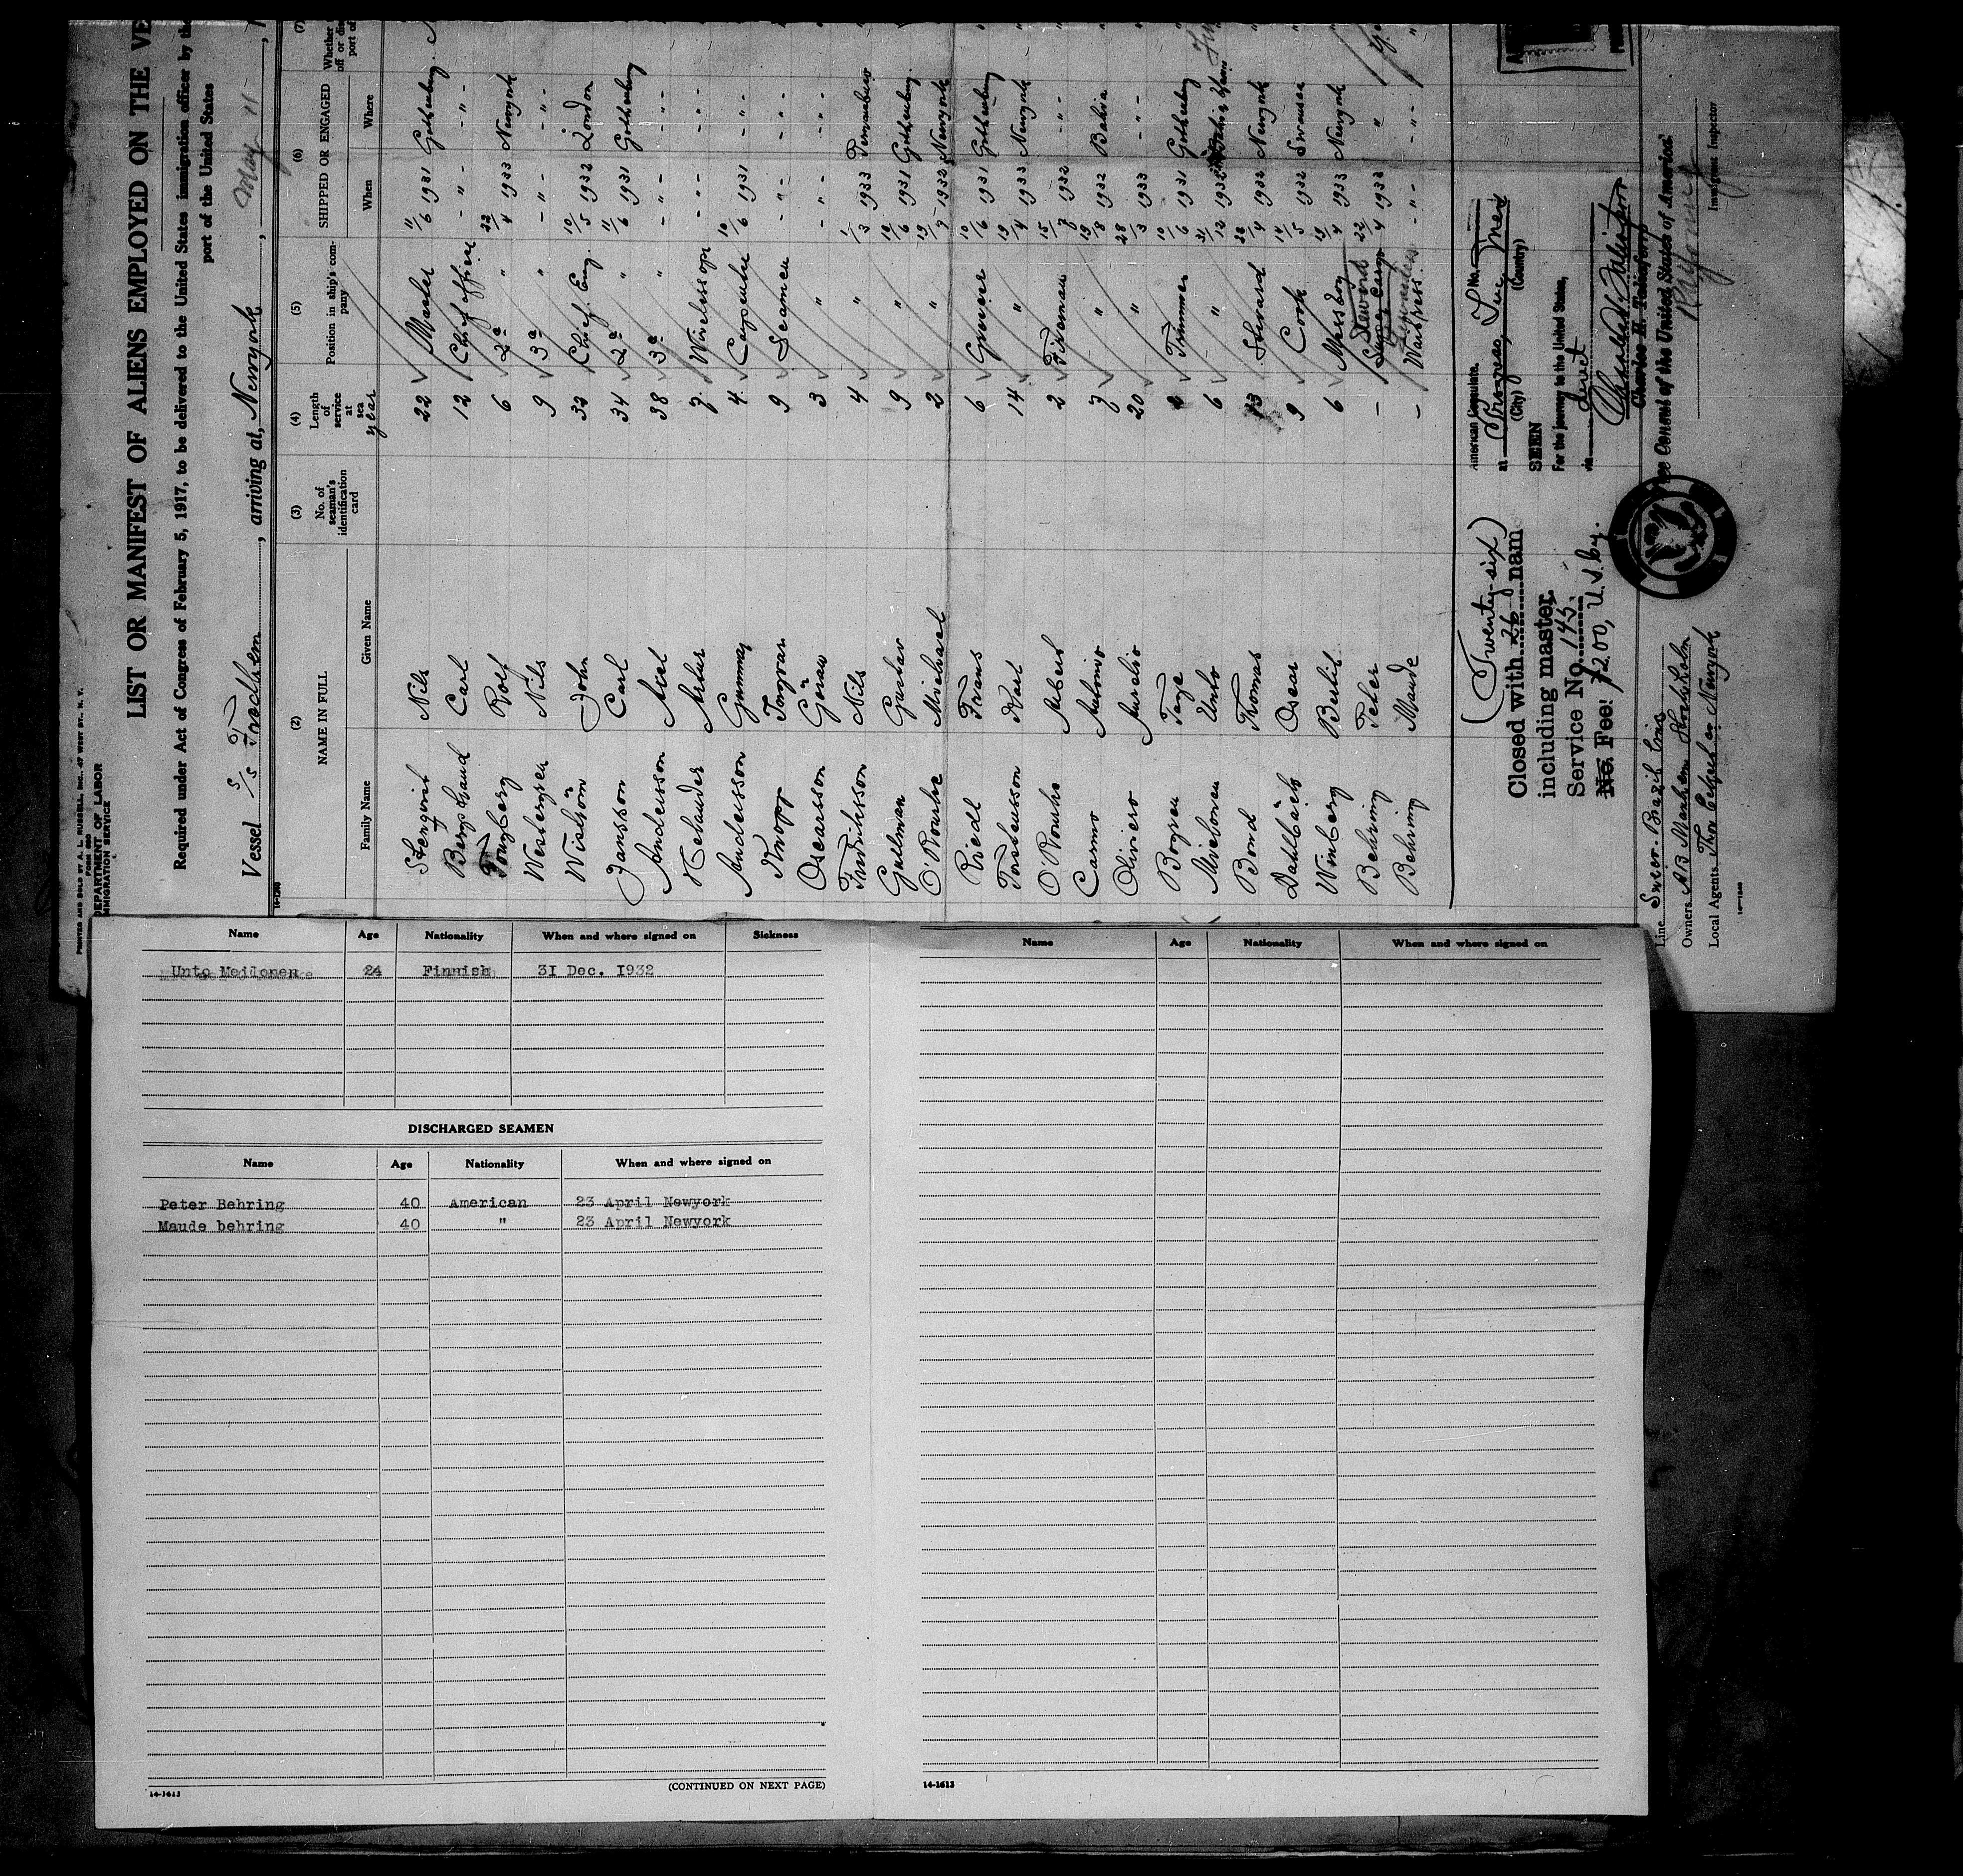 PRINTED AND SOLD BY A. L. RUSSELL, INC., 47 WEST ST., N. Y.
FORM 680
DEPARTMENT OF LABOR
IMMIGRATION SERVICE
LIST OR MANIFEST OF ALIENS EMPLOYED ON THE VE
Required under Act of Congress of February 5, 1917, to be delivered to the United States immigration officer by the
port of the United States
Vessel S/S Troldhem, arriving at, Newyork, May 11-
(2) (3) (4) (5) (6) (7)
NAME IN FULL No. of seaman's identification card Length of service at sea year Position in ship's company SHIPPED OR ENGAGED Whether
Family Name Given Name When Where
Stenqvist Nils 22 Master 11/6 1931 Gothenburg
Bergstrand Carl 12 Chief officer -"- -"-
Tornberg Rolf 6 2a " 22/4 1933 Newyork
Westergren Nils 9 3a " -"- -"-
Wiström John 32 Chief Eng. 10/5 1932 London
Jansson Carl 34 2a " 11/6 1931 Gothenburg
Andersson Axel 38 3a " -"- -"-
Artur 7 Wireless opr -"- -"-
Andersson Gunnar 4 Carpenter 10/6 1931 -"-
Knopp Torgvar 9 Seamen -"- -"-
Oscarsson Göran 3 " -"- -"-
Fredriksson Nils 4 " 1/3 1933 Pernambuco
Gullman Gustav 9 " 10/6 1931 Gothenburg
O'Rourke Michael 2 " 19/7 1932 Newyork
Riedl Frans 6 Greaser 10/6 1931 Gothenburg
Torstensson Karl 14 " 19/4 1933 Newyork
O'Rourke Albert 2 Fireman 15/7 1932 -"-
Carmo Antonio 7 " 19/8 1932 Bahia
Oliviero Aurelio 20 " 28/3 1933 -"-
Bogren Tage Trimmer 10/6 1931 Gothenburg
Unto 6 " 31/12 1932
Bond Thomas 13 Steward 20/4 1932 Newyork
Dahlbäck Oscar 9 Cook 14/5 1932 Swansea
Winberg Bertil 6 Messboy 19/4 1933 Newyork
Behring Peter - Steward 22/4 1933 "
Behring Maude - Waitress -"- -"-
(Twenty-six)
Closed with 26 nam
including master.
Service No. 145.
No. Fee! $2.00, U.S. Cy.
American Consulate.
at (City) (Country)
SEEN
For the journey to the United States,
via direct
Charles H. Taliaferro
Vice Consul of the United States of America.
Immigrant Inspector
Line Swea-Brazil Line
Owners
Local Agents Newyork
14-1240
Name Age Nationality When and where signed on Sickness
Unto Meilonen 24 Finnish 31 Dec. 1932
DISCHARGED SEAMEN
Name Age Nationality When and where signed on
Peter Behring 40 American 23 April Newyork
Maude behring 40 " 23 April Newyork
14-1613 (CONTINUED ON NEXT PAGE)
Name Age Nationality When and where signed on
14-1613